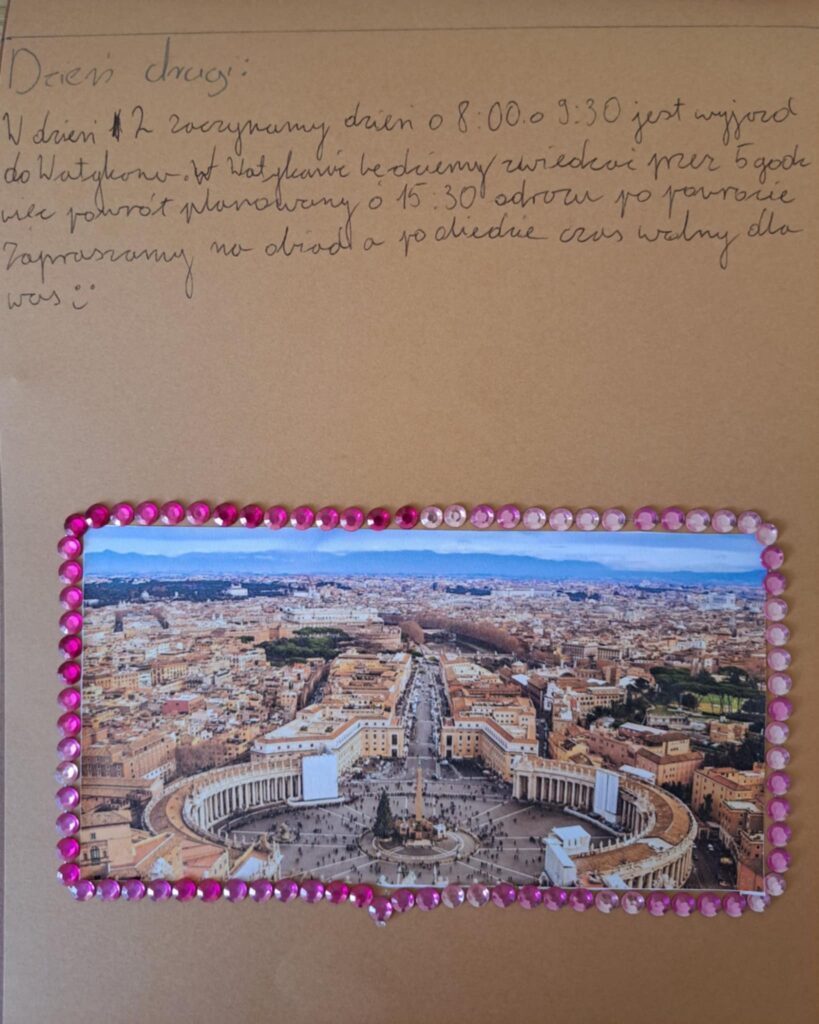 Dzień drugi:
W dzień 2 zaczynamy dzień o 8:00.o 9:30 jest wyjazd
do Watykanu. W Watykanie będziemy zwiedzać przez 5 godz
więc powrót planowany o 15:30 odrazu po powrocie
Zapraszamy na obiad a po obiedzie czas wolny dla
was :)